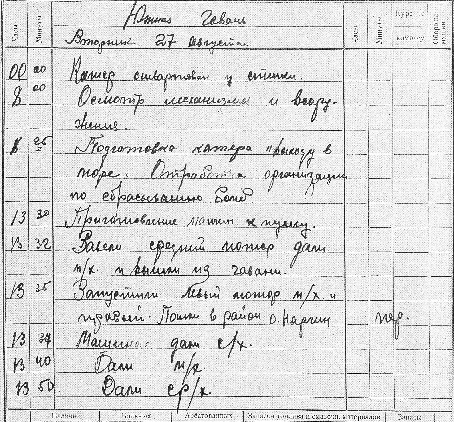 Часы Минуты Южная Гавань Часы Минуты Курс
Вторник 27 августа компаса
00 00 Катер ошвартован у стенки.
8 00 Осмотр механизмов и воору-
жения.
8 25 Подготовка катера к выходу в
море. Отработка организации
по сбрасыванию бомб
13 30 Приготовление машин к пуску.
13 32 Завели средний мотор дали
м/х. и вышли из гавани.
13 35 Запустили левый мотор м/х. и
правый. Пошли в район о. Нарген
13 37 Машинам дали с/х.
13 40 Дали м/х
13 50 Дали ср/х.
Больных Арестованных